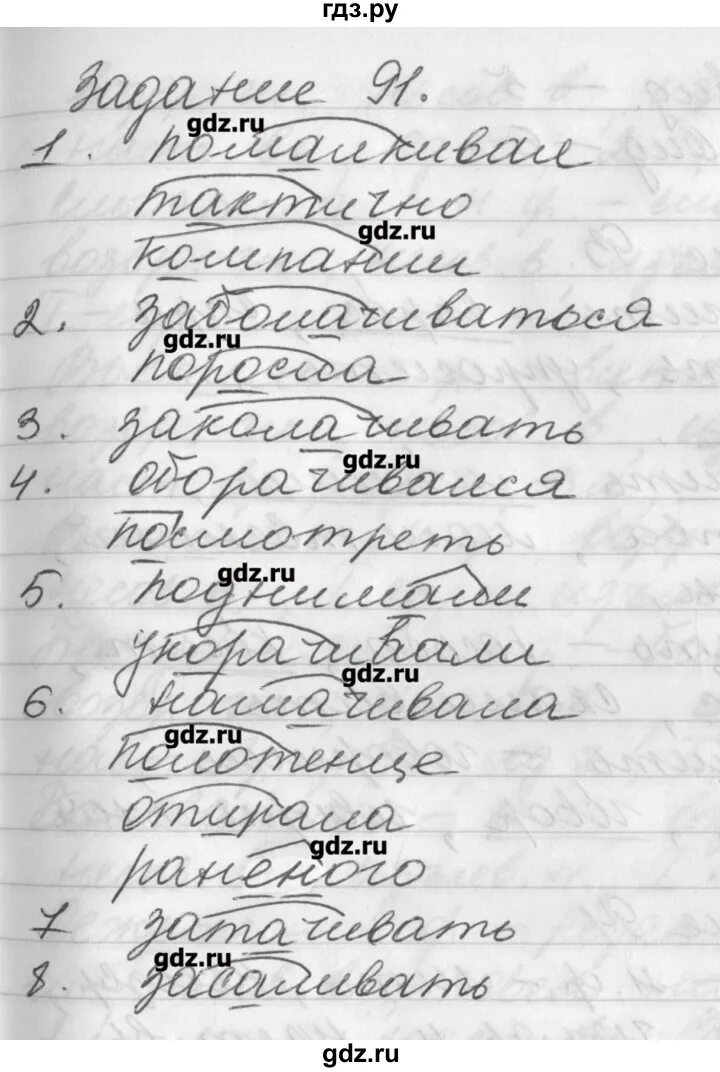 гдз.ру
Задание 91.
gdz.ru
1. помалкивал
тактично
gdz.ru
компании
2. заболачиваться
gdz.ru
пороста
3. заколачивать
gdz.ru
4. оборачивался
посмотреть
gdz.ru
5. поднимали
укорачивали
gdz.ru
6. намачивала
gdz.ru
полотенце
отирала
gdz.ru
раненого
7 затачивать
gdz.ru
8. засаливать
gdz.ru